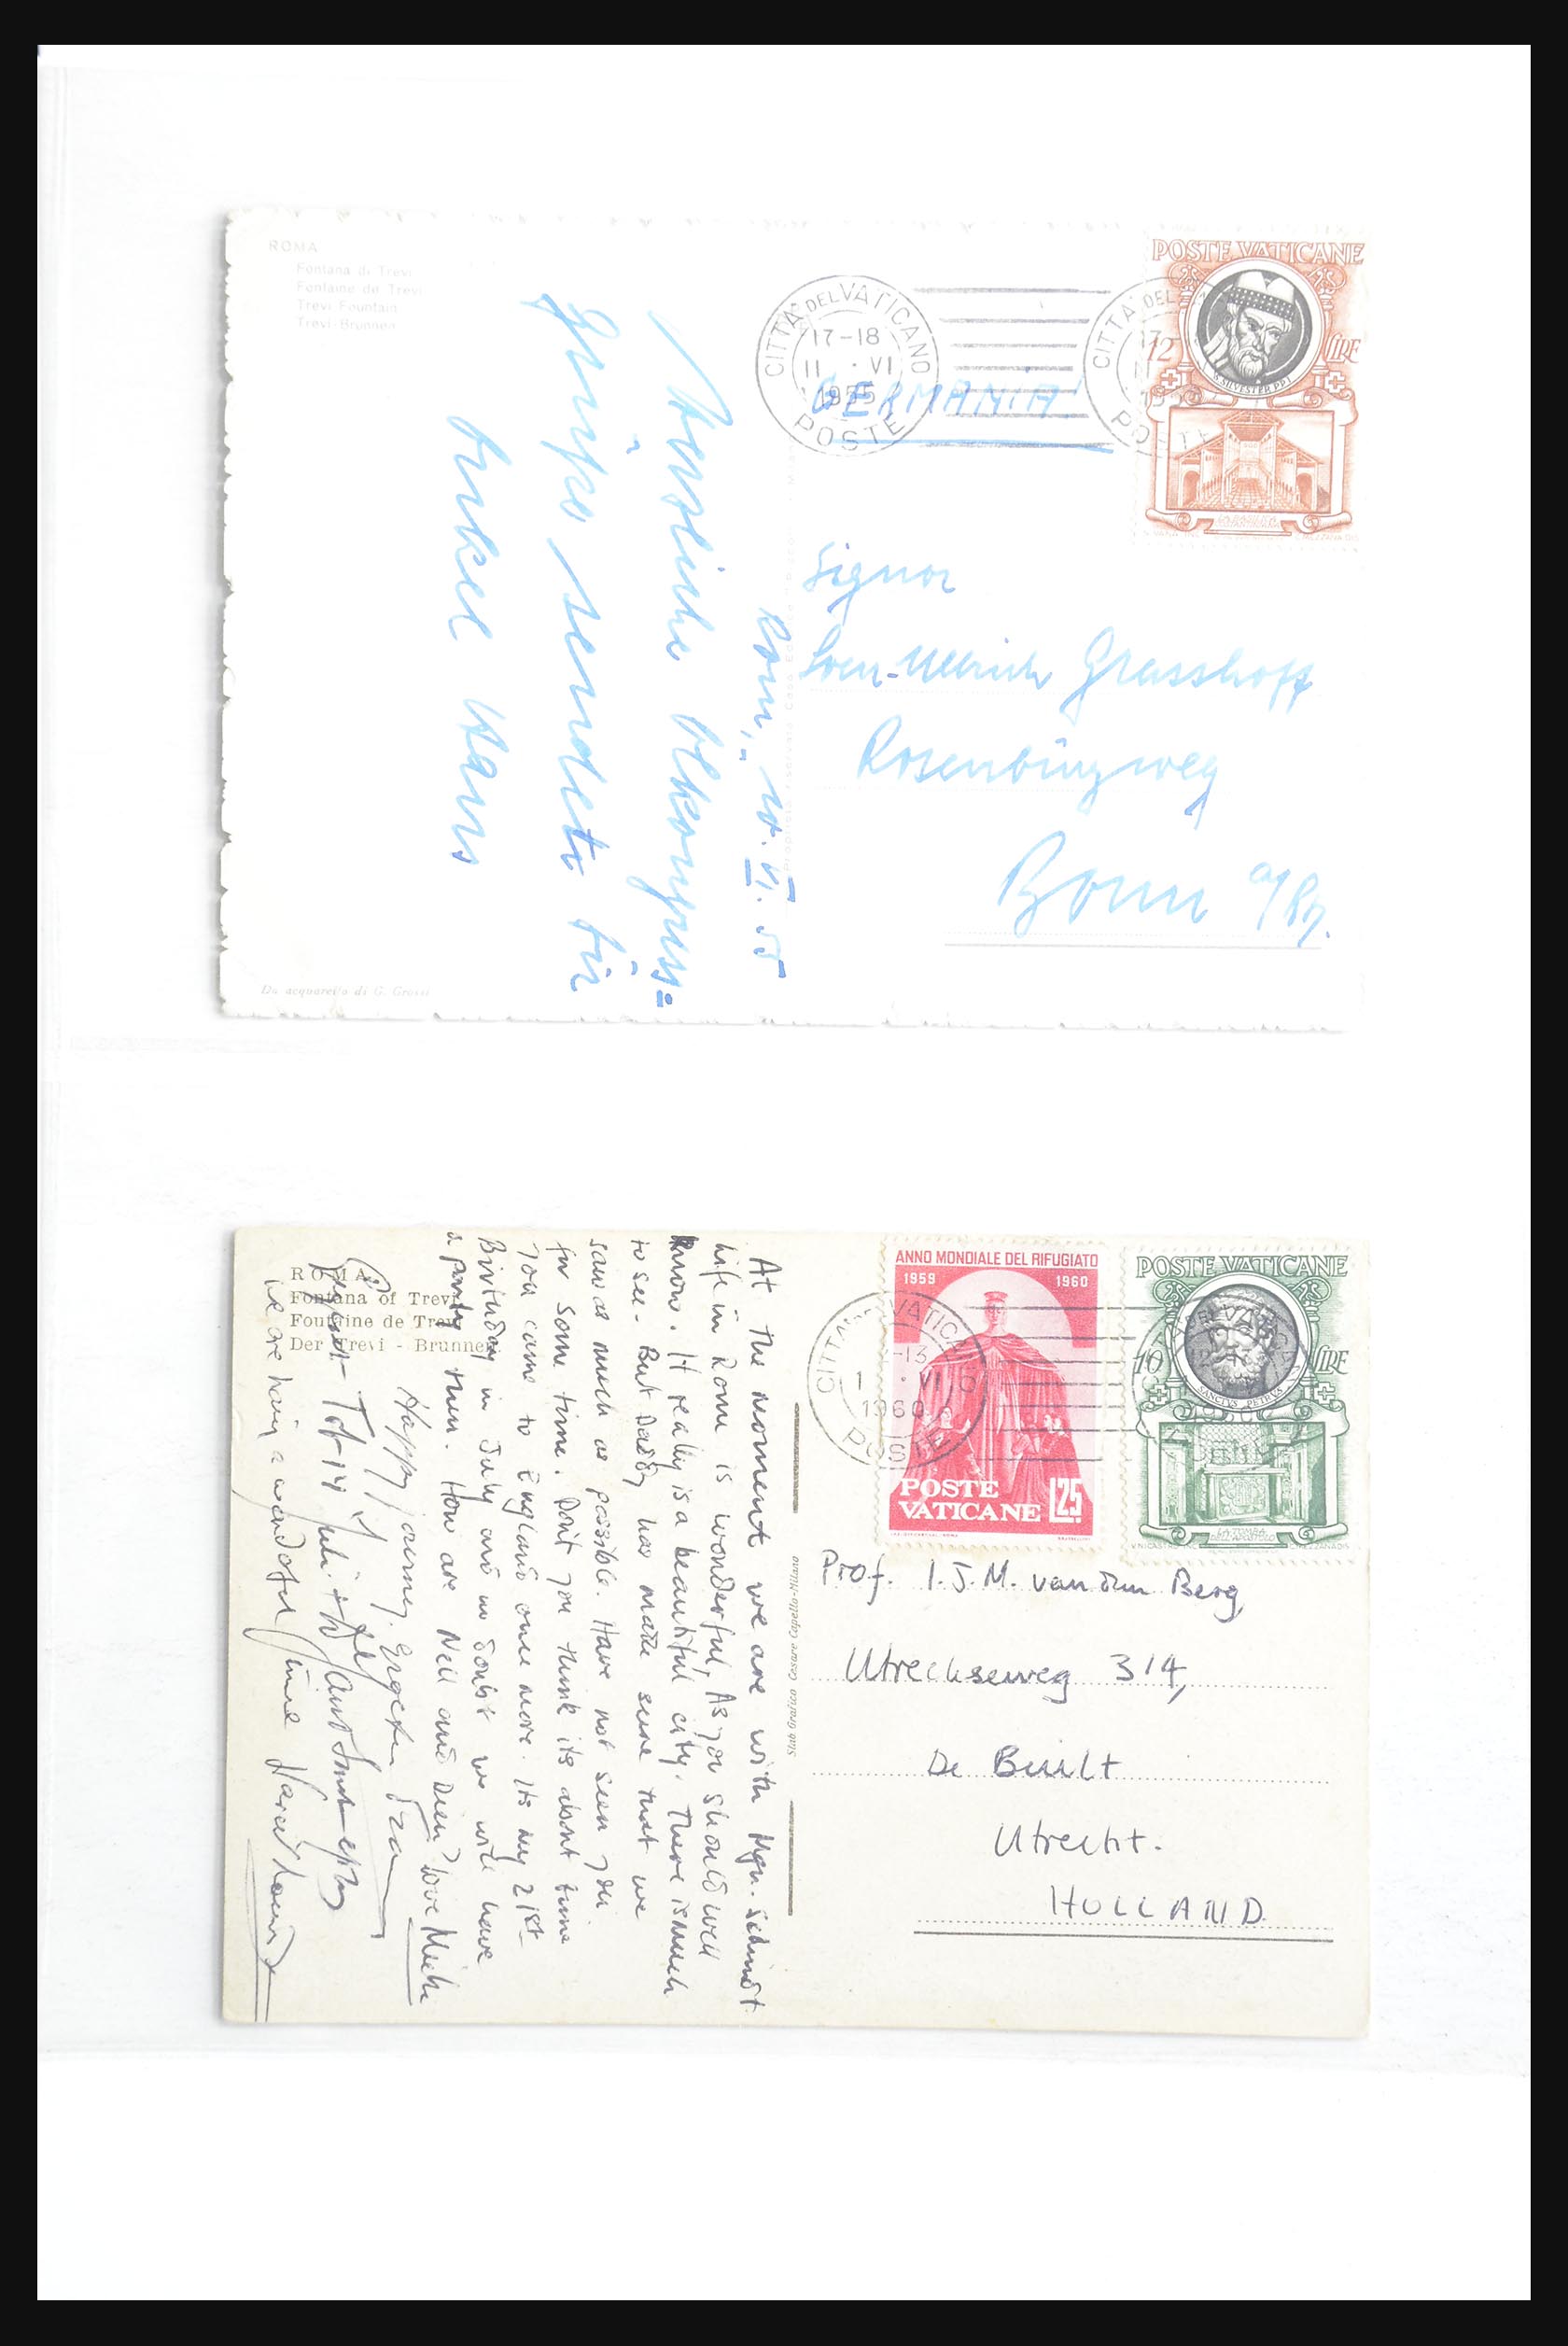 ROMA
Fontana di Trevi
Fontaine de Trevi
Trevi Fountain
Trevi-Brunnen
Rom, 10. VI. 55
Herzliche
Grüße sendet Dir
Onkel Hans
Da acquarello di G. Grossi
CITTA' DEL VATICANO
17-18
11 · VI
1955
POSTE
GERMANIA!
CITTA' DEL
POSTE
POSTE VATICANE
12 LIRE
S. SILVESTER PP I
Signor
Sven-Ullrich Grasshoff
Rosenburgweg
Bonn a/Rh.
ROMA
Fontana of Trevi
Fontaine de Trevi
Der Trevi - Brunnen
At the moment we are with Mgn. Schmidt
life in Rome is wonderful, As you should well
know. It really is a beautiful city. There is much
to see - But Daddy has made sure that we
saw as much as possible. Have not seen you
for some time. Don't you think its about time
you came to England once more. Its my 21st
Birthday in July and no doubt we will have
a party then. How are Nell and Dien? Love
Happy journey.
Tot 14 Juli
we are having a wonderful time
Stab Grafico Cesare Capello-Milano
CITTA' DEL VATICANO
-13
1 · VI
1960
POSTE
ANNO MONDIALE DEL RIFUGIATO
1959 1960
POSTE
VATICANE L25
POSTE VATICANE
10 LIRE
SANCTVS PETRVS
Prof. I.J.M. van den Berg,
Utrechseweg 314,
De Buult
Utrecht.
HOLLAND.